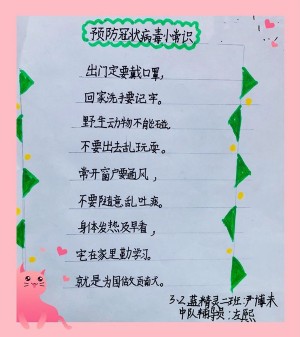 预防冠状病毒小常识
出门定要戴口罩，
回家洗手要记牢。
野生动物不能碰
不要出去乱玩耍。
常开窗户要通风，
不要随意乱吐痰。
身体发热及早看，
宅在家里勤学习
就是为国做贡献。
3.2蓝精灵二班：尹博未
中队辅导员：左熙